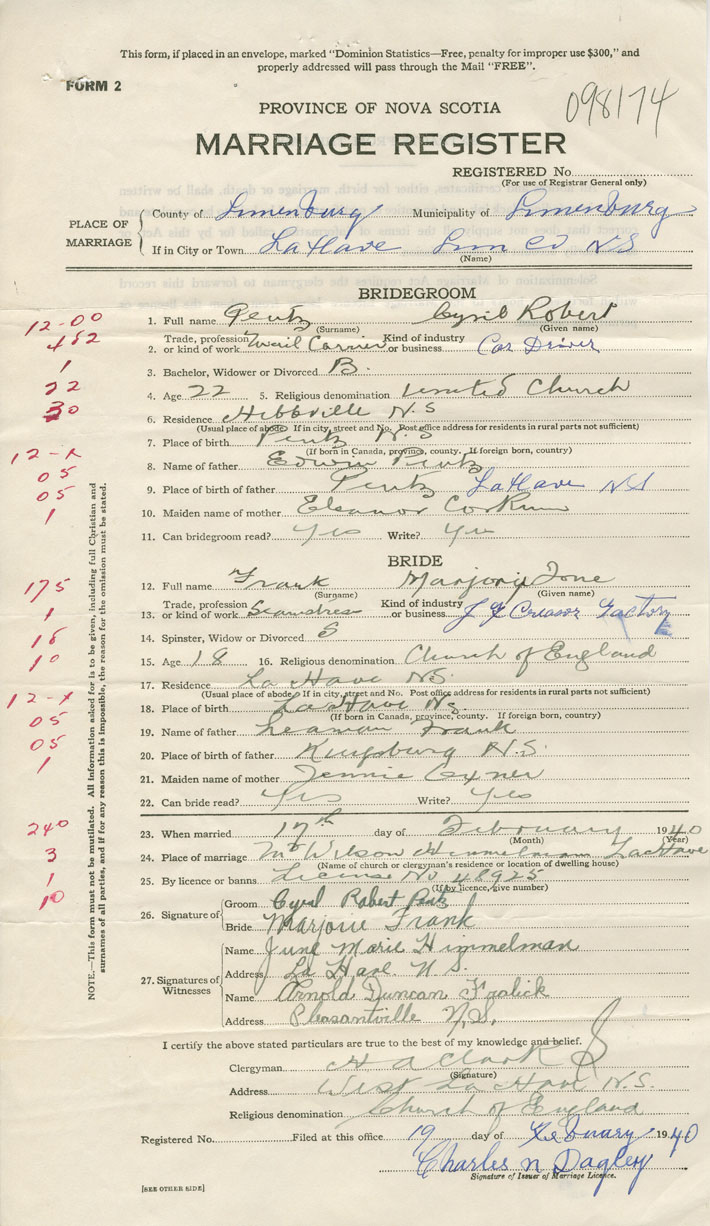 This form, if placed in an envelope, marked "Dominion Statistics—Free, penalty for improper use $300," and
properly addressed will pass through the Mail "FREE".
FORM 2
098174
PROVINCE OF NOVA SCOTIA
MARRIAGE REGISTER
REGISTERED No.
(For use of Registrar General only)
PLACE OF MARRIAGE
County of Lunenburg Municipality of Lunenburg
If in City or Town LaHave Lun Co NS
(Name)
BRIDEGROOM
12-00
1. Full name Pentz Cyril Robert
(Surname) (Given name)
452
2. Trade, profession or kind of work Mail Carrier Kind of industry or business Car Driver
1
3. Bachelor, Widower or Divorced B.
22
4. Age 22 5. Religious denomination United Church
30
6. Residence Hebbville N.S
(Usual place of abode If in city, street and No. Post office address for residents in rural parts not sufficient)
7. Place of birth Pentz N.S
(If born in Canada, province, county. If foreign born, country)
12-x
8. Name of father Edwin Pentz
05
9. Place of birth of father Pentz LaHave NS
05
10. Maiden name of mother Eleanor Corkum
1
11. Can bridegroom read? Yes Write? Yes
BRIDE
12. Full name Frank Marjorie Ione
(Surname) (Given name)
175
13. Trade, profession or kind of work Seamstress Kind of industry or business Factory
1
14. Spinster, Widow or Divorced S
18
15. Age 18 16. Religious denomination Church of England
10
17. Residence La Have NS.
(Usual place of abode If in city, street and No. Post office address for residents in rural parts not sufficient)
12-x
18. Place of birth LaHave NS.
(If born in Canada, province, county. If foreign born, country)
05
19. Name of father Leaman Frank
05
20. Place of birth of father Kingsburg N.S.
1
21. Maiden name of mother Jennie Oxner
22. Can bride read? Yes Write? Yes
240
23. When married 17th day of February 1940
(Month) (Year)
3
24. Place of marriage Mr Wilson Himmelman LaHave
(Name of church or clergyman's residence or location of dwelling house)
1
25. By licence or banns License No 48925
(If by licence, give number)
10
26. Signature of
Groom Cyril Robert Pentz
Bride Marjorie Frank
27. Signatures of Witnesses
Name June Marie Himmelman
Address La Have. N.S.
Name Arnold Duncan
Address Pleasantville N.S.
NOTE.—This form must not be mutilated. All information asked for is to be given, including full Christian and
surnames of all parties, and if for any reason this is impossible, the reason for the omission must be stated.
I certify the above stated particulars are true to the best of my knowledge and belief.
Clergyman H A Clark
(Signature)
Address West La Have N.S.
Religious denomination Church of England
Registered No. Filed at this office 19 day of Febuary 1940
Charles N Dagley
Signature of Issuer of Marriage Licence.
[SEE OTHER SIDE]